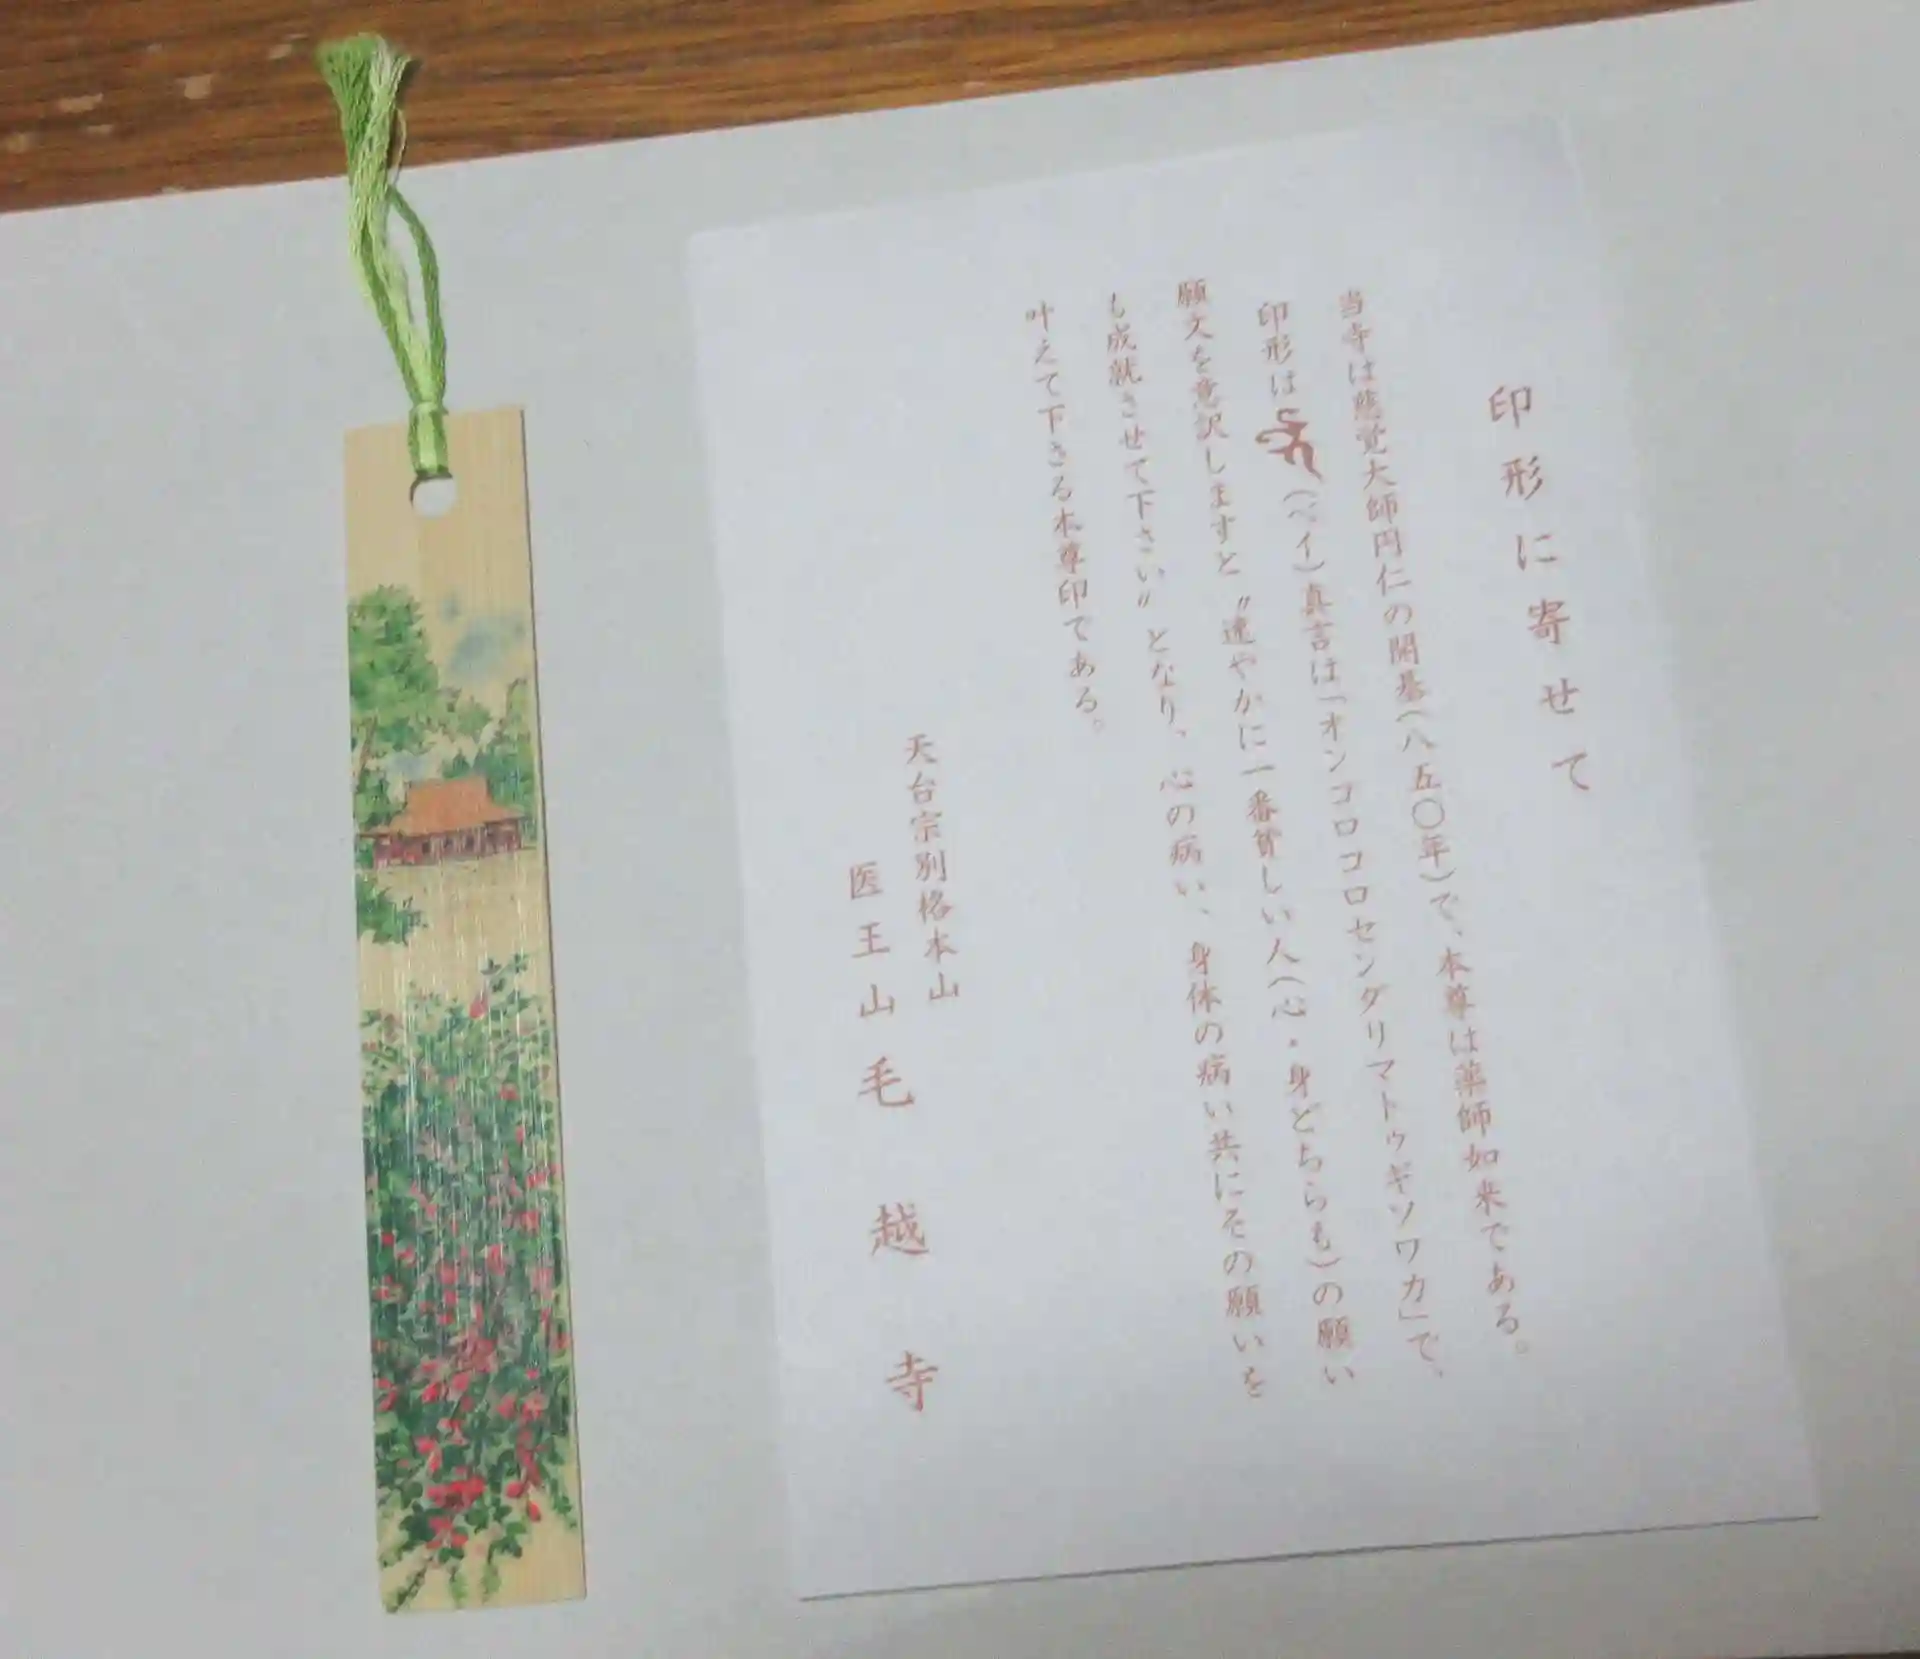 印形に寄せて
当寺は慈覚大師円仁の開基（八五〇年）で、本尊は薬師如来である。
印形は（ベイ）真言は「オンコロコロセンダリマトゥギソワカ」で、
願文を意訳しますと〃速やかに一番貧しい人（心・身どちらも）の願い
も成就させて下さい〃となり、心の病い、身体の病い共にその願いを
叶えて下さる本尊印である。
天台宗別格本山
医王山毛越寺